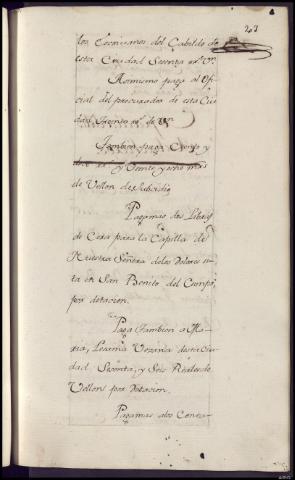 los Escrivanos del Cabildo de
esta Ciudad Sesenta rs. Vn.
Asimismo paga al Ofi
cial del procurador de esta Ciu
dad treinta rs. de Vn
Tambien paga Ciento y
rs. y Veinte y ocho mrs
de Vellon de Subsidio
Pagamas dos Libras
de Cera para la Capilla de
Nuestra Señora de los Dolores si
ta en San Benito del Campo,
por dotacion.
Paga tambien a Ma
ria, Lesma Vezina desta Ciu
dad Sesenta, y Seis Reales de
Vellon por Dotacion.
Pagamas alos Conta-